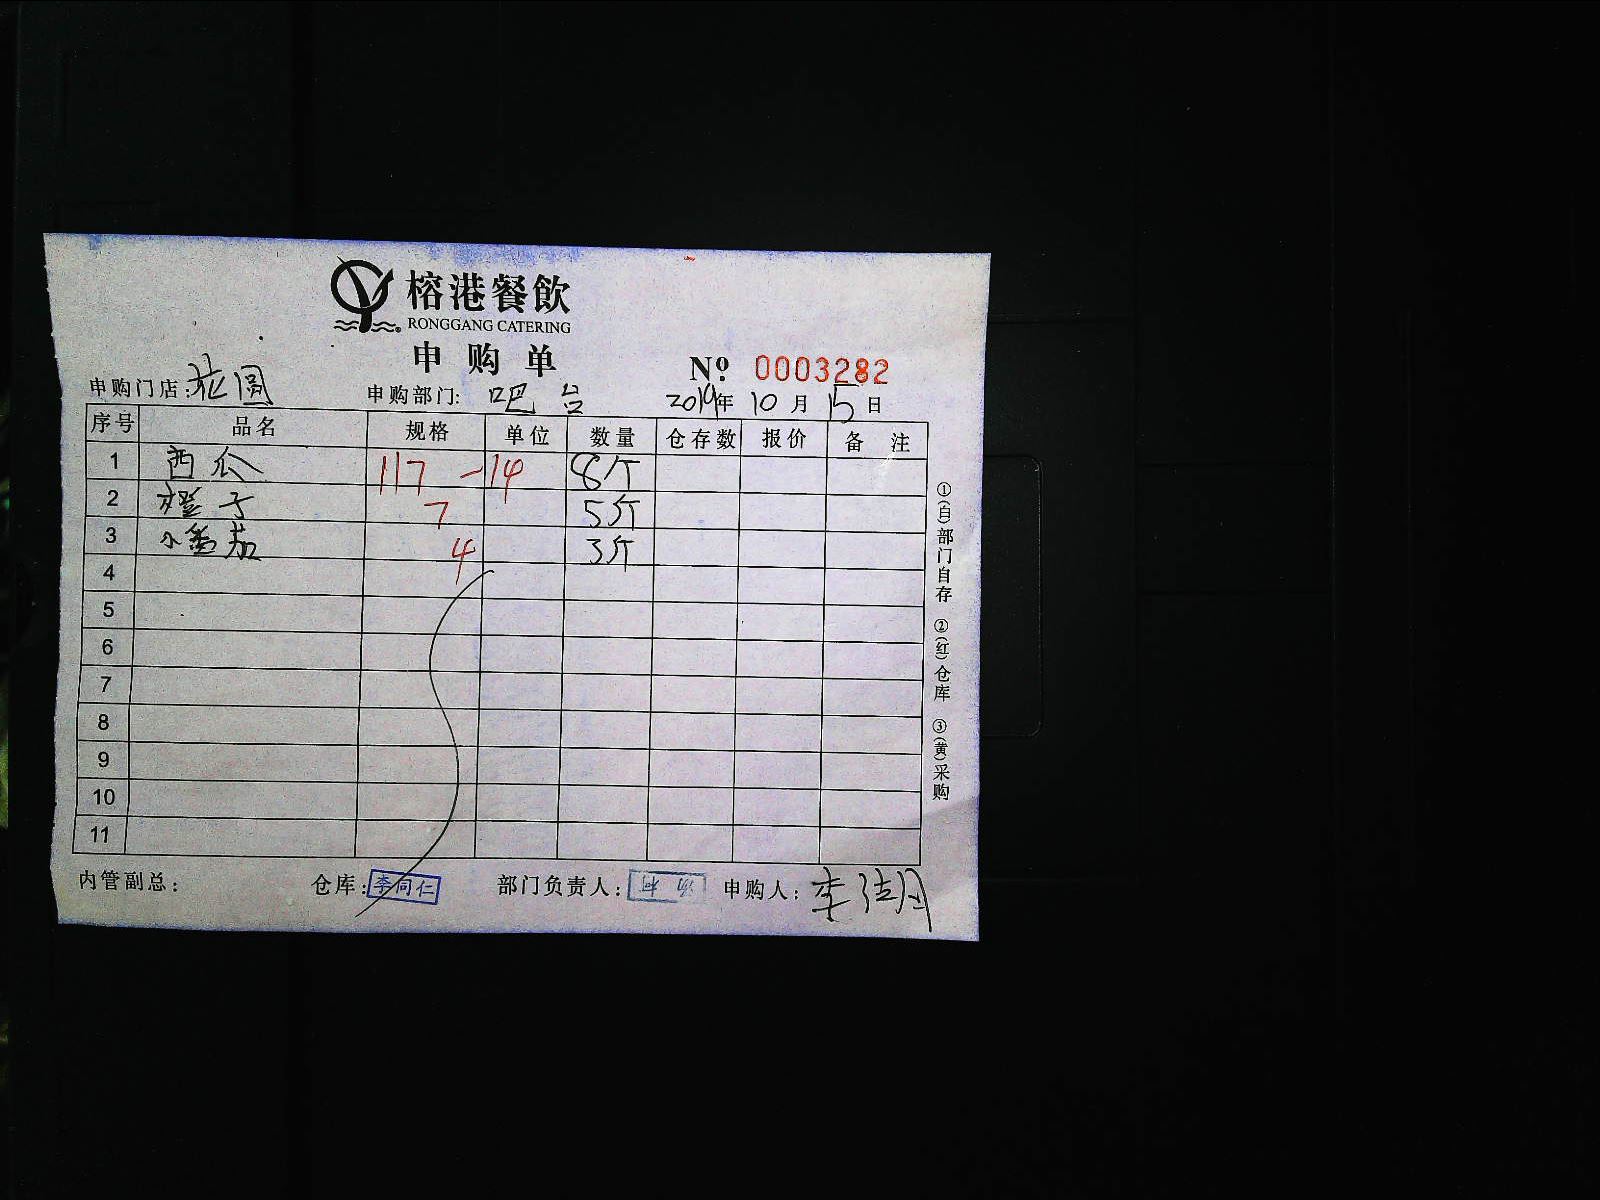 榕港餐飲
RONGGANG CATERING
申购单
№ 0003282
申购门店: 花园 申购部门: 吧台 2019年 10月 15日
序号 品名 规格 单位 数量 仓存数 报价 备注
1 西瓜 117 -14 8斤
2 橙子 7 5斤
3 小番茄 4 3斤
4
5
6
7
8
9
10
11
①(白)部门自存 ②(红)仓库 ③(黄)采购
内管副总: 仓库: 李同仁 部门负责人: 申购人: 李